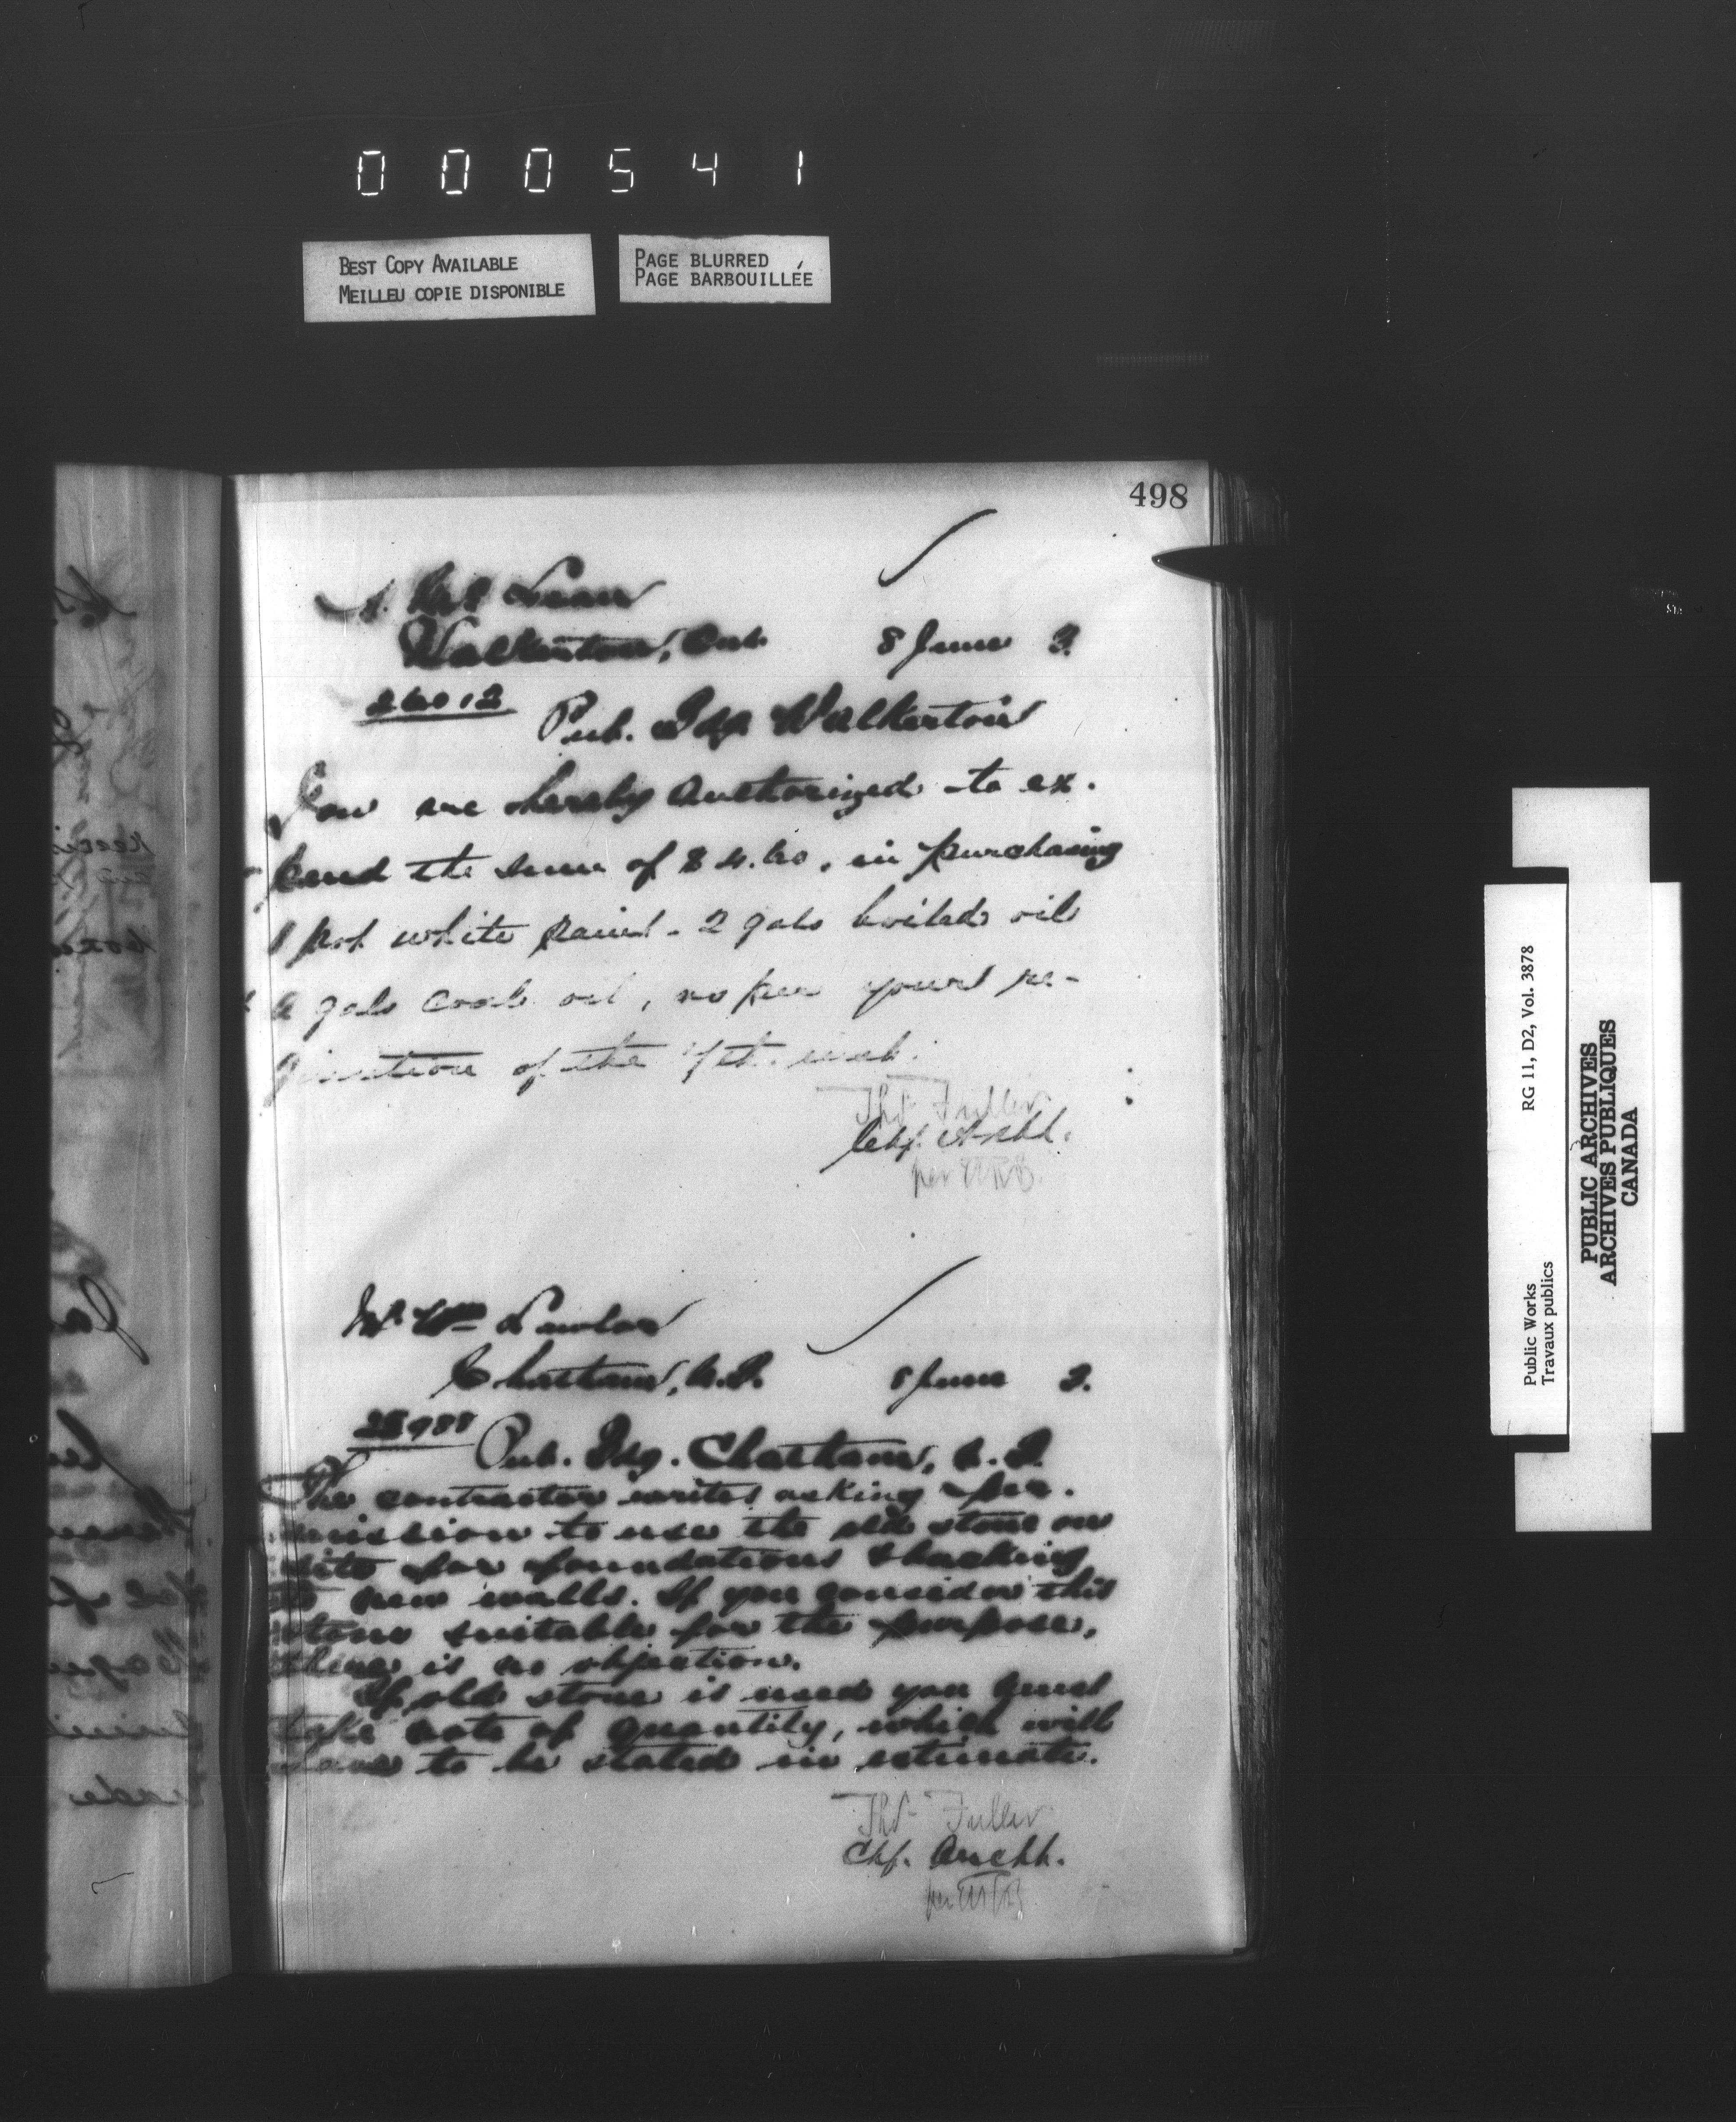 000541
BEST COPY AVAILABLE
MEILLEU COPIE DISPONIBLE
PAGE BLURRED
PAGE BARBOUILLÉE
498
Walkerton, Ont. 8 June 3.
26012
Pub. Bdg Walkerton
You are hereby authorized to ex-
pend the sum of $4.60, in purchasing
1 pot white paint - 2 gals boiled oil
2 gals coal oil, as per your re-
quisition of the 4th. inst.
Thos Fuller
Chf. Archt.
per
Mr Wm
Chatham, N.B. 8 June 3.
25988
Pub. Bdg. Chatham, N.B.
The contractor writes asking per-
mission to use the old stone on
site for foundations & backing
to new walls. If you consider this
stone suitable for the purpose,
there is no objection.
If old stone is used you must
take note of quantity, which will
have to be stated in estimate.
Thos Fuller
Chf. Archt.
per
RG 11, D2, Vol. 3878
Public Works
Travaux publics
PUBLIC ARCHIVES
ARCHIVES PUBLIQUES
CANADA